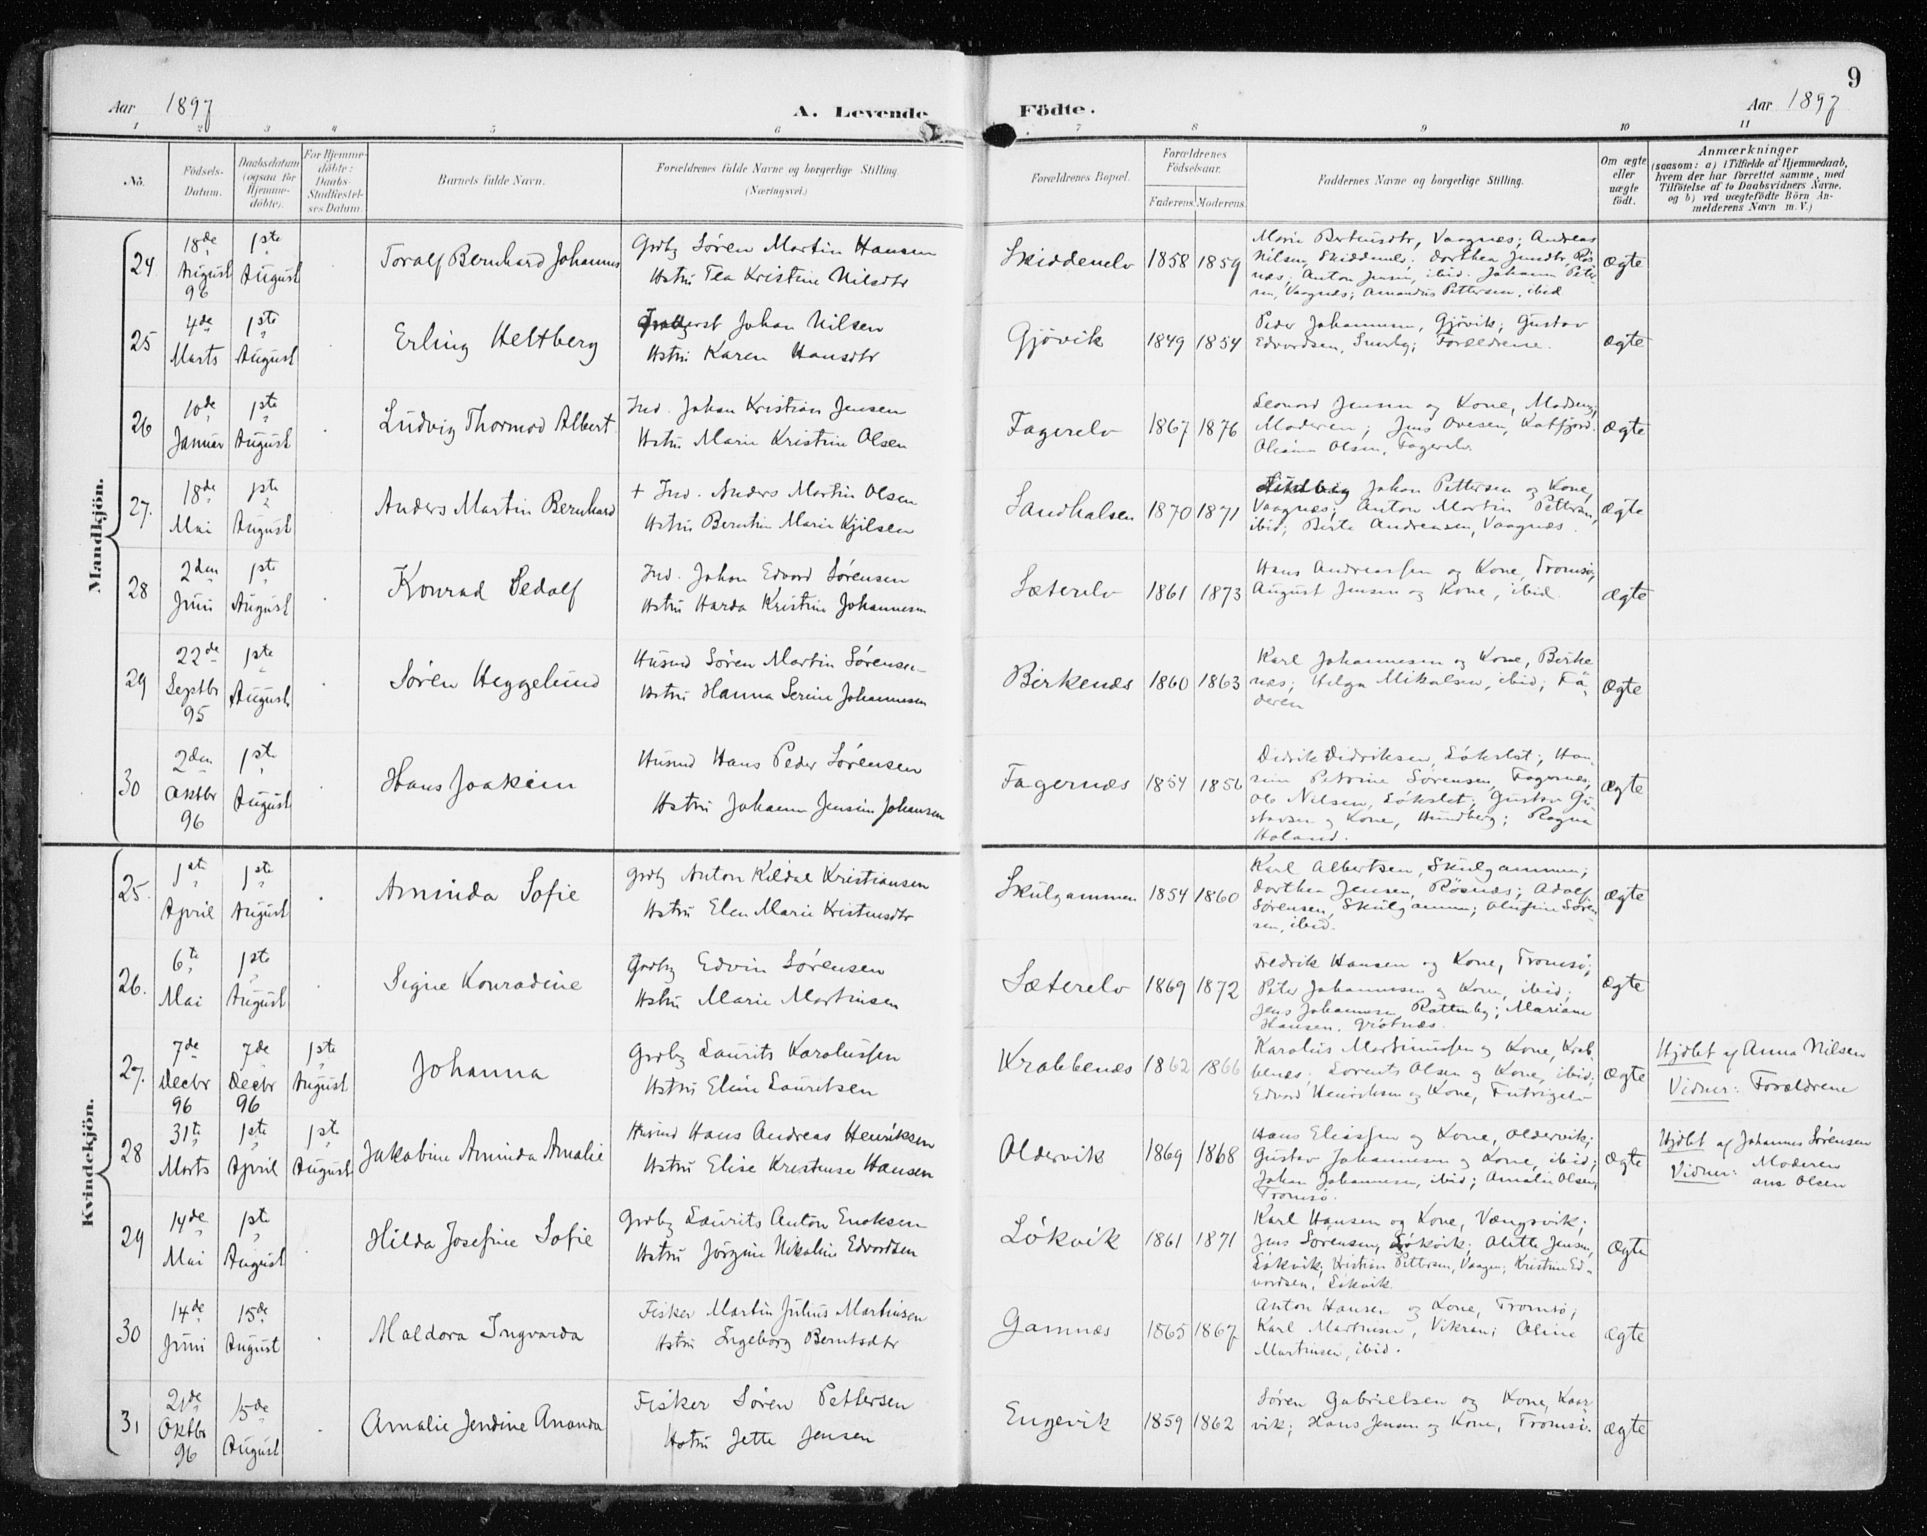 Aar 1897
A. Levende Födte.
Aar 1897
9
1 2 3 4 5 6 7 8 9 10 11
No.
Födsels-Datum.
Daabsdatum (ogsaa for Hjemmedöbte).
For Hjemmedöbte: Daabs-Stadfæstelses Datum.
Barnets fulde Navn.
Forældrenes fulde Navne og borgerlige Stilling (Næringsvei.)
Forældrenes Bopæl.
Forældrenes Födselsaar.
Faderens. Moderens.
Faddernes Navne og borgerlige Stilling.
Om ægte eller uægte födt.
Anmærkninger
(saasom: a) i Tilfælde af Hjemmedaab,
hvem der har forrettet samme, med
Tilföielse af to Daabsvidners Navne,
og b) ved uægtefödte Börn An-
melderens Navn m. V.)
Mandkjön.
24 18de August 96 1ste August Toralf Bernhard Johannes
Grdbr Søren Martin Hansen
Hstru Tea Kristine Nilsdtr
Skiddenelv 1858 1859
Marie Berntsdtr, Vaagnes; Andreas
Nilsen, Skiddenelv; Dorthea Jensdtr, Røs-
næs; Anton Jensen, ibid. Johanna Peter-
sen, Vaagnæs; Amandus Pettersen, ibid
ægte
25 4de Marts 1ste August Erling Heltberg
Johan Nilsen
Hstru Karen Hansdtr
Gjøvik 1849 1854
Peder Johannesen, Gjøvik; Gustav
Edvardsen, Forældrene.
ægte
26 10de Januar 1ste August Ludvig Thormod Albert
Ind. Johan Kristian Jensen
Hstru Marie Kristine Olsen
Fagerelv 1867 1876
Leonard Jensen og Kone,
Moderen; Jens Ovesen, Katfjord.
Olsen, Fagerelv
ægte
27. 18de Mai 1ste August Anders Martin Bernhard
+ Ind. Anders Martin Olsen
Hstru Berntin Marie Kjilsen
Sandhalsen 1870 1871
Johan Pettersen og Kone,
Vaagnæs; Anton Martin Pettersen,
ibid; Berte Andreasen, Vaagnæs.
ægte
28 2den Juni 1ste August Konrad Sedolf
Ind. Johan Edvard Sørensen
Hstru Harda Kristine Johannesen
Sæterelv 1861 1873
Hans Andreassen og Kone, Tromsø,
August Jensen og Kone, ibid.
ægte
29 22de Septbr 95 1ste August Søren Heggelund
Husmd Søren Martin Sørensen
Hstru Hanna Serine Johannesen
Birkenæs 1860 1863
Karl Johannesen og Kone, Birke-
næs; Helga Mikalsen, ibid; Fa-
deren
ægte
30 2den Oktbr 96 1ste August Hans Joakim
Husmd Hans Peder Sørensen
Hstru Johanna Jensine Johansen
Fagernæs 1854 1856
Didrik Didriksen, Løkslet; Han-
sine Petrine Sørensen, Fagernæs,
Ole Nilsen, Løkslet; Gustav Gu-
stavsen og Kone, Hundberg; Ragna
Holand.
ægte
Kvindekjön.
25. 1ste April 1ste August Aminda Sofie
Grdbr Anton Kildal Kristiansen
Hstru Elen Marie Kristensdtr
Skulgammen 1854 1860
Karl Albertsen, Skulgammen;
Dorthea Jensen, Røsnæs; Adolf
Sørensen, Skulgammen; Olufine Søren-
sen, ibid.
ægte
26. 6te Mai 1ste August Signe Konradine
Grdbr Edvin Sørensen
Hstru Marie Martinsen
Sæterelv 1869 1872
Fredrik Hansen og Kone, Tromsø;
Peter Johannesen og Kone, ibid;
Jens Johannesen, Mariane
Hansen, Grøtnæs.
ægte
27. 7de Decbr 96 7de Decbr 96 1ste August Johanna
Grdbr Laurits Karolussen
Hstru Eline Lauritsen
Krabbenæs 1862 1866
Karolus Martinussen og Kone, Krab-
benæs; Lorents Olsen og Kone, ibid;
Edvard Henriksen og Kone, Futrigelv
ægte
Hjdbt af Anna Nilsen
Vidner: Forældrene
28 31te Marts 1ste April 1ste August Jakobine Aminda Amalie
Husmd Hans Andreas Henriksen
Hstru Elise Kristense Hansen
Oldervik 1869 1868
Hans Eliassen og Kone, Oldervik;
Gustav Johannesen og Kone, ibid;
Johan Johannesen, ibid; Amalie Olsen,
Tromsø.
ægte
Hjdbt af Johannes Sørensen
Vidner: Moderen
Olsen
29 14de Mai 1ste August Hilda Josefine Sofie
Grdbr Laurits Anton Enoksen
Hstru Jørgine Nikoline Edvardsen
Løkvik 1861 1871
Karl Hansen og Kone, Vængsvik;
Jens Sørensen, Løkvik; Alette Jensen,
Løkvik; Kristian Pettersen, Vaagen; Kristine Ed-
vardsen, Løkvik.
ægte
30 14de Juni 15de August Maldora Ingvarda
Fisker Martin Julius Martinsen
Hstru Ingeborg Berntsdtr
Gamnæs 1865 1867
Anton Hansen og Kone, Tromsø;
Karl Martinsen, Vikran; Oline
Martinsen, ibid.
ægte
31 21de Oktbr 96 15de August Amalie Jendine Ananda
Fisker Søren Pettersen
Hstru Jette Jensen
Engevik 1859 1862
Søren Gabrielsen og Kone, Kaar-
vik; Hans Jensen og Kone, Tromsø.
ægte